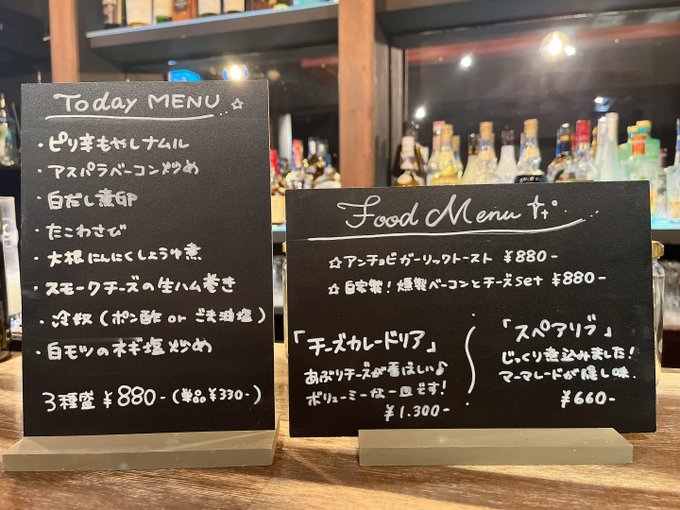 Today MENU ☆
・ピリ辛もやしナムル
・アスパラベーコン炒め
・白だし煮卵
・たこわさび
・大根にんにくしょうゆ煮
・スモークチーズの生ハム巻き
・冷奴(ポン酢 or ごま油塩)
・白モツのネギ塩炒め
3種盛 ¥880-(単品¥330-)
Food Menu
☆アンチョビガーリックトースト ¥880-
☆自家製!燻製ベーコンとチーズset ¥880-
「チーズカレードリア」
あぶりチーズが香ばしい♪
ボリューミーな一皿です!
¥1.300-
「スペアリブ」
じっくり煮込みました!
マーマレードが隠し味.
¥660-